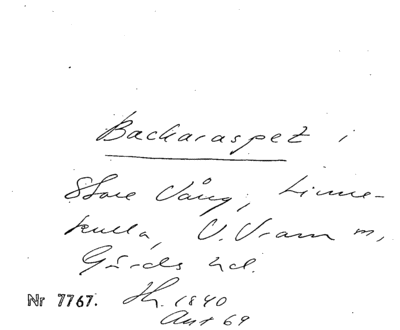 Backaraspet i
Store Vång, Linne-
kulla, V. Vram m,
Gärds hd.
Nr 7767. Sk. 1840
Ant 69